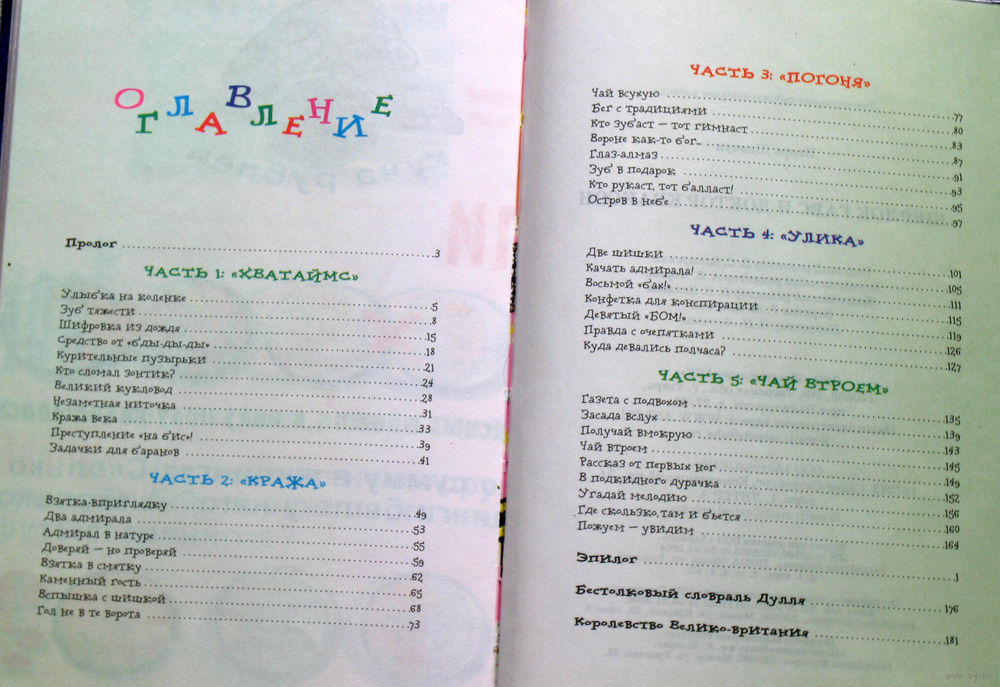 ОГЛАВЛЕНИЕ
Пролог ........ 3
ЧАСТЬ 1: «ХВАТАЙМС»
Улыбка на коленке ........ 5
Зуб тяжести ........ 8
Шифровка из дождя ........ 15
Средство от «б'ды-ды-ды» ........ 18
Курительные пузырьки ........ 21
Кто сломал зонтик? ........ 24
Великий кукловод ........ 28
Незаметная ниточка ........ 31
Кража века ........ 33
Преступление «на б'ис»! ........ 39
Задачки для баранов ........ 41
ЧАСТЬ 2: «КРАЖА»
Взятка-вприглядку ........ 49
Два адмирала ........ 53
Адмирал в натуре ........ 55
Доверяй — но проверяй ........ 59
Взятка в смятку ........ 62
Каменный гость ........ 65
Вспышка с шишкой ........ 68
Гол не в те ворота ........ 73
ЧАСТЬ 3: «ПОГОНЯ»
Чай всухую ........ 77
Бег с традициями ........ 80
Кто зубаст — тот гимнаст ........ 83
Вороне как-то бог... ........ 87
Глаз-алмаз ........ 91
Зуб в подарок ........ 93
Кто рукаст, тот балласт! ........ 95
Остров в небе ........ 97
ЧАСТЬ 4: «УЛИКА»
Две шишки ........ 101
Качать адмирала! ........ 105
Восьмой «бах!» ........ 111
Конфетка для конспирации ........ 115
Девятый «БОМ!» ........ 119
Правда с очепятками ........ 126
Куда девались полчаса? ........ 127
ЧАСТЬ 5: «ЧАЙ ВТРОЕМ»
Газета с подвохом ........ 135
Засада вслух ........ 139
Получай вмокрую ........ 143
Чай втроем ........ 145
Рассказ от первых ног ........ 149
В подкидного дурачка ........ 152
Угадай мелодию ........ 156
Где скользко, там и бьется ........ 160
Пожуем — увидим ........ 164
Эпилог ........ 1
Бестолковый словраль Дулля ........ 176
Королевство Велико-вритания ........ 181
www.ay.by